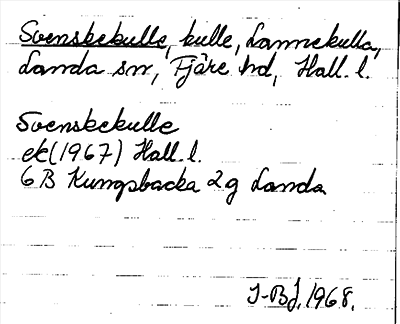 Svenskekulle, kulle, Lannekulla,
Landa sn, Fjäre hd, Hall. l.
Svenskekulle
ek (1967) Hall. l.
6B Kungsbacka 2g Landa
I-BJ. 1968.